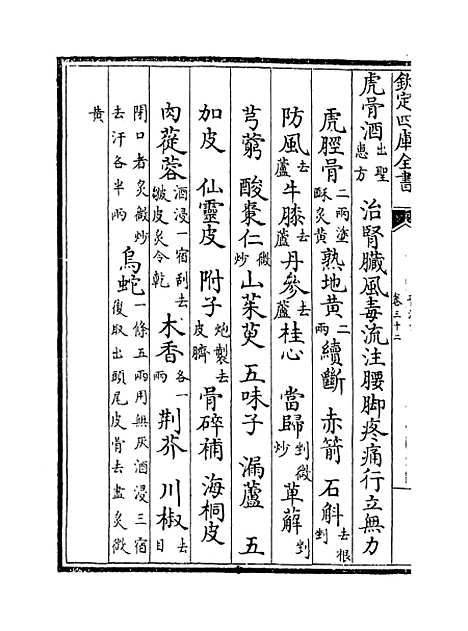 欽定四庫全書
卷三十二
虎骨酒出聖惠方 治腎臟風毒流注腰脚疼痛行立無力
虎脛骨二兩塗酥炙黄 熟地黄二兩 續斷 赤箭 石斛去根剉
防風去蘆 牛膝去蘆 丹參去蘆 桂心 當歸剉微炒 萆薢剉
芎藭 酸棗仁微炒 山茱萸 五味子 漏蘆 五
加皮 仙靈皮 附子炮製去皮臍 骨碎補 海桐皮
肉蓯蓉酒浸一宿刮去皴皮炙令乾 木香各一兩 荆芥 川椒去目
閉口者炙微炒去汗各半兩 烏蛇一條五兩用無灰酒浸三宿復取出頭尾皮骨去盡炙微
黄